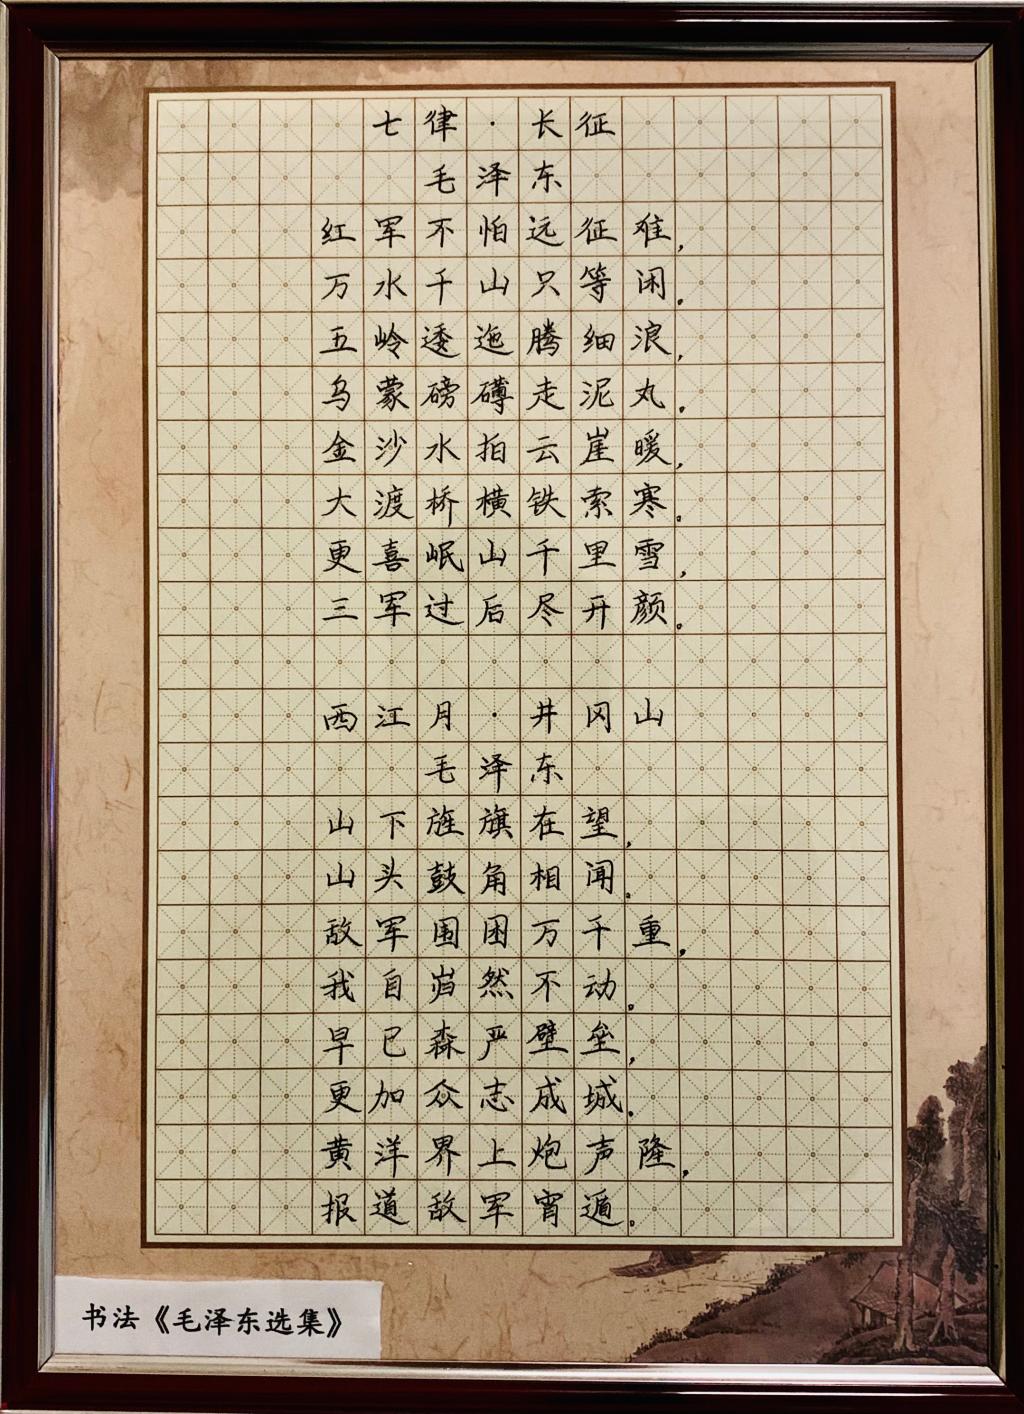 七律·长征
毛泽东
红军不怕远征难，
万水千山只等闲。
五岭逶迤腾细浪，
乌蒙磅礴走泥丸。
金沙水拍云崖暖，
大渡桥横铁索寒。
更喜岷山千里雪，
三军过后尽开颜。
西江月·井冈山
毛泽东
山下旌旗在望，
山头鼓角相闻。
敌军围困万千重，
我自岿然不动。
早已森严壁垒，
更加众志成城。
黄洋界上炮声隆，
报道敌军宵遁。
书法《毛泽东选集》